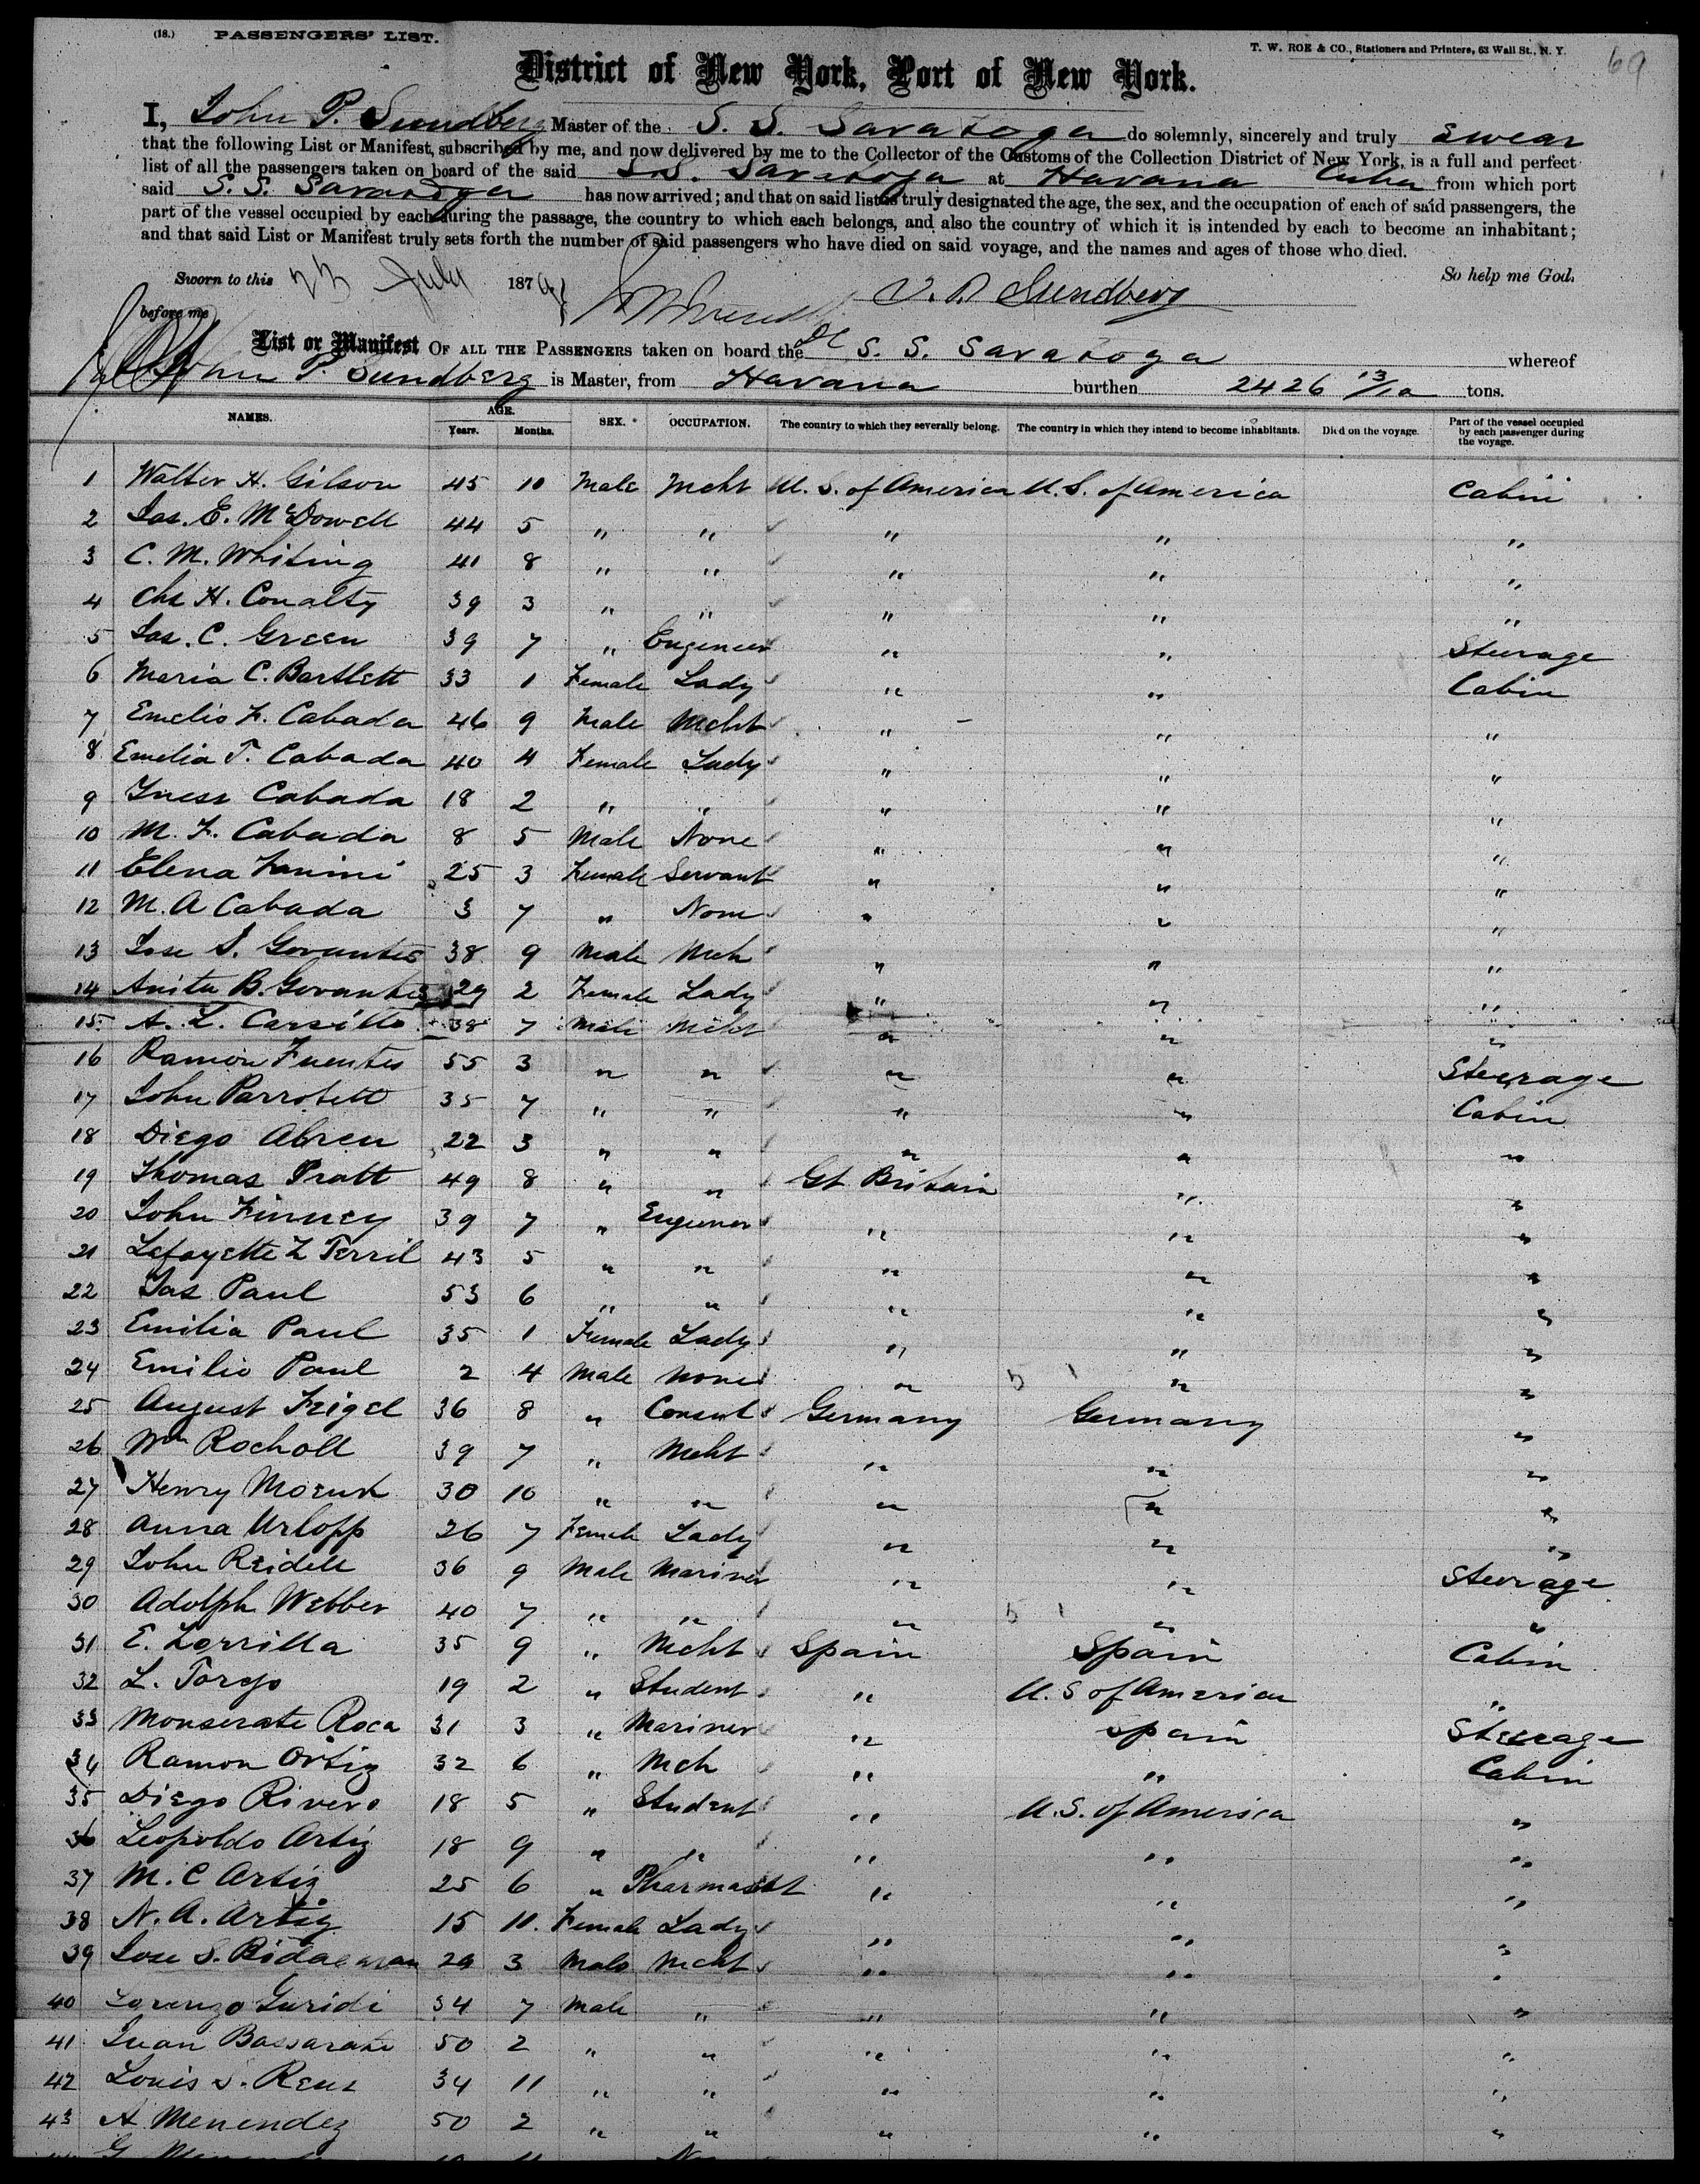 (18.) PASSENGERS' LIST.
T. W. ROE & CO., Stationers and Printers, 63 Wall St., N. Y.
69
District of New York, Port of New York.
I, John P. Sundberg Master of the S. S. Saratoga do solemnly, sincerely and truly swear
that the following List or Manifest, subscribed by me, and now delivered by me to the Collector of the Customs of the Collection District of New York, is a full and perfect
list of all the passengers taken on board of the said S.S. Saratoga at Havana Cuba from which port
said S.S. Saratoga has now arrived; and that on said list is truly designated the age, the sex, and the occupation of each of said passengers, the
part of the vessel occupied by each during the passage, the country to which each belongs, and also the country of which it is intended by each to become an inhabitant;
and that said List or Manifest truly sets forth the number of said passengers who have died on said voyage, and the names and ages of those who died.
Sworn to this 23 July 1879 So help me God.
J. P. Sundberg
before me
List or Manifest OF ALL THE PASSENGERS taken on board the S. S. Saratoga whereof
John P. Sundberg is Master, from Havana burthen 2426 13/10 tons.
NAMES. AGE. Years. Months. SEX. OCCUPATION. The country to which they severally belong. The country in which they intend to become inhabitants. Died on the voyage. Part of the vessel occupied by each passenger during the voyage.
1 Walter H. Gilson 45 10 Male Mcht U. S. of America U. S. of America Cabin
2 Jas. E. McDowell 44 5 " " " " "
3 C. M. Whiting 41 8 " " " " "
4 Chs H. Conalty 39 3 " " " " "
5 Jas. C. Green 39 7 " Engineer " " Steerage
6 Maria C. Bartlett 33 1 Female Lady " " Cabin
7 Emelio F. Cabada 46 9 Male Mcht " " "
8 Emelia T. Cabada 40 4 Female Lady " " "
9 Iness Cabada 18 2 " " " " "
10 M. F. Cabada 8 5 Male None " " "
11 Elena Fanini 25 3 Female Servant " " "
12 M. A Cabada 3 7 " None " " "
13 Jose S. Govantes 38 9 Male Mch " " "
14 Anita B. Govantes 29 2 Female Lady " " "
15 A. L. Carsillo 38 7 Male Mcht " " "
16 Ramon Fuentes 55 3 " " " " Steerage
17 John Parrotett 35 7 " " " " Cabin
18 Diego Abreu 22 3 " " " " "
19 Thomas Pratt 49 8 " " Gt Britain " "
20 John Finney 39 7 " Engineer " " "
21 Lafayette L Terril 43 5 " " " " "
22 Jas Paul 53 6 " " " " "
23 Emilia Paul 35 1 Female Lady " " "
24 Emilio Paul 2 4 Male None " " "
25 August Feigel 36 8 " Consul Germany Germany "
26 Wm Rocholl 39 7 " Mcht " " "
27 Henry Moeuh 30 10 " " " " "
28 Anna Urlopp 26 7 Female Lady " " "
29 John Reidell 36 9 Male Mariner " " Steerage
30 Adolph Webber 40 7 " " " " "
31 E. Zorrilla 35 9 " Mcht Spain Spain Cabin
32 L. Toreyo 19 2 " Student " U. S of America "
33 Monserate Roca 31 3 " Mariner " Spain Steerage
34 Ramon Ortiz 32 6 " Mch " " Cabin
35 Diego Rivero 18 5 " Student " U. S. of America "
36 Leopoldo Artiz 18 9 " " " " "
37 M. C Artiz 25 6 " Pharmacist " " "
38 N. A. Artiz 15 11. Female Lady " " "
39 Jose S. 29 3 Male Mcht " " "
40 Lorenzo Guridi 34 7 Male " " " "
41 Juan Bassarate 50 2 " " " " "
42 Louis S. Reus 34 11 " " " " "
43 A Menendez 50 2 " " " " "